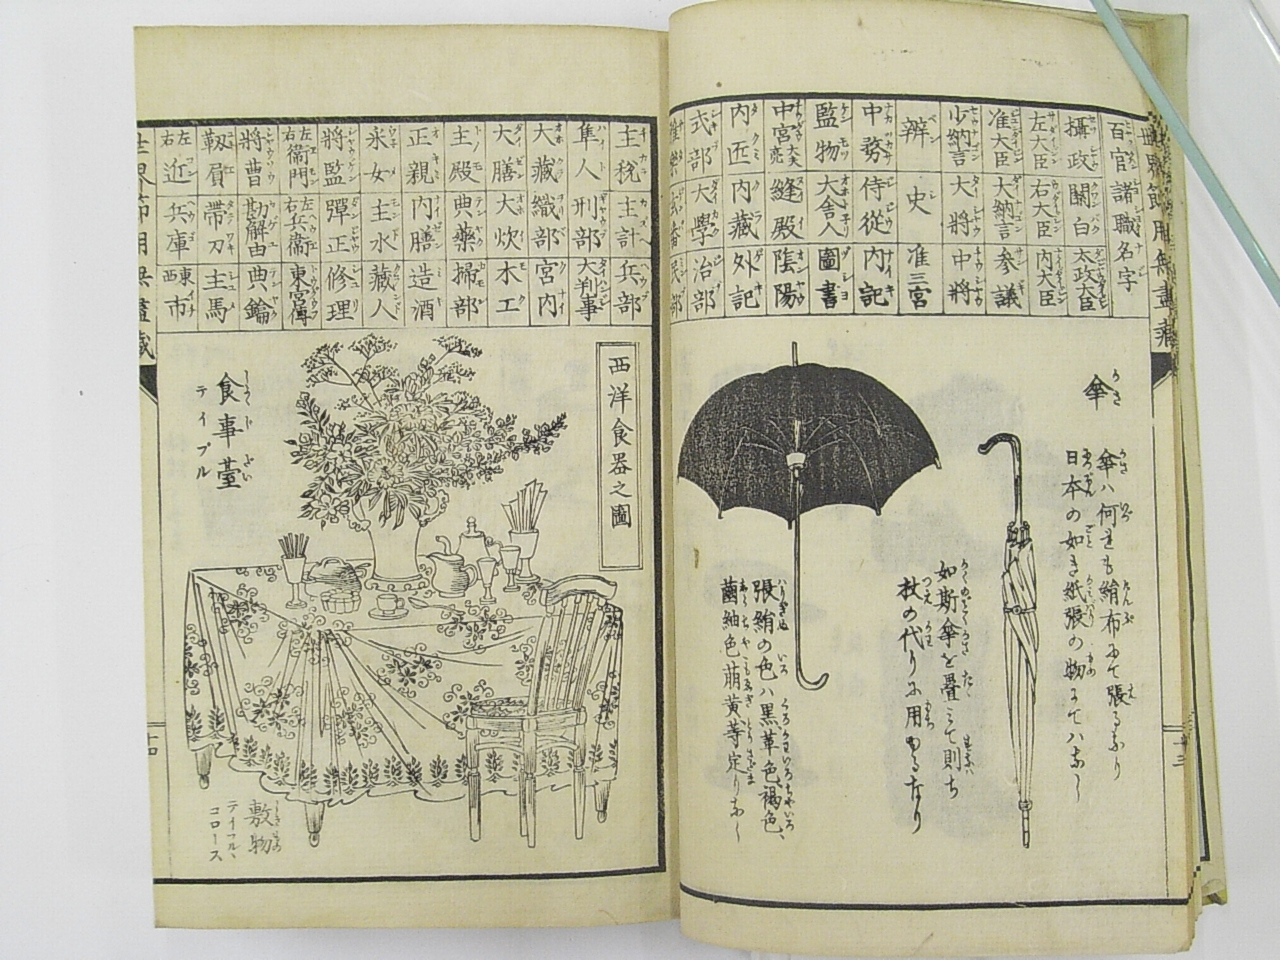 百官諸職名字
攝政 關白 太政大臣
左大臣 右大臣 内大臣
准大臣 大納言 参議
少納言 大將 中將
辨 史 准三宮
中務 侍從 内記
監物 大舎人 圖書
中宮大夫亮 縫殿 陰陽
内匠 内藏 外記
式部 大學 治部
傘
傘ハ何れも絹布にて張るなり
日本の如き紙張の物にてハなし
如斯傘を疊みて則ち
杖の代りに用ゆるなり
張絹の色ハ黒革色褐色、
藍紬色萠黄等定りなし
主税 主計 兵部
隼人 刑部 大判事
大藏 織部 宮内
大膳 大炊 木工
主殿 典藥 掃部
正親 内膳 造酒
采女 主水 藏人
將監 彈正 修理
左衞門 右衞門 左兵衞 右兵衞 東宮傅
將曹 勘解由 典鑰
靱屓 帶刀 主馬
左近 右近 兵庫 東市 西市
西洋食器之圖
食事臺
テイブル
敷物
テイフル、
コロース